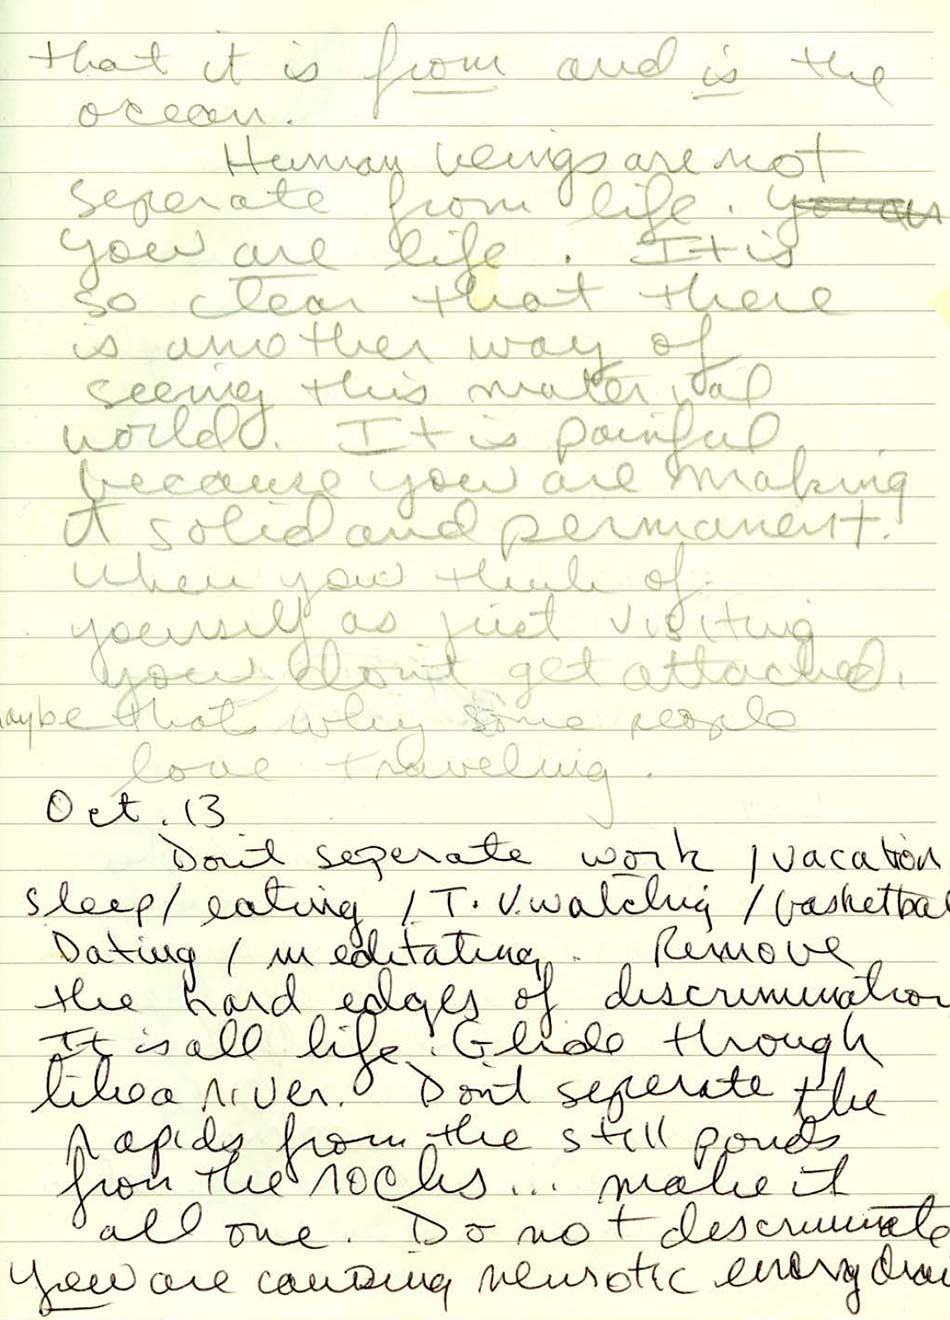 that it is from and is the
ocean.
Human beings are not
seperate from life. you are
you are life. It is
so clear that there
is another way of
seeing this material
world. It is painful
because you are making
it solid and permanent.
When you think of
yourself as just visiting
you don't get attached.
maybe that why some people
love traveling.
Oct. 13
Don't seperate work / vacation
sleep / eating / T.V. watching / basketbal
Dating / meditating. Remove
the hard edges of discrimination
It is all life. Glide through
like a river. Don't seperate the
rapids from the still ponds
from the rocks... make it
all one. Do not descriminate
You are causing neurotic energy